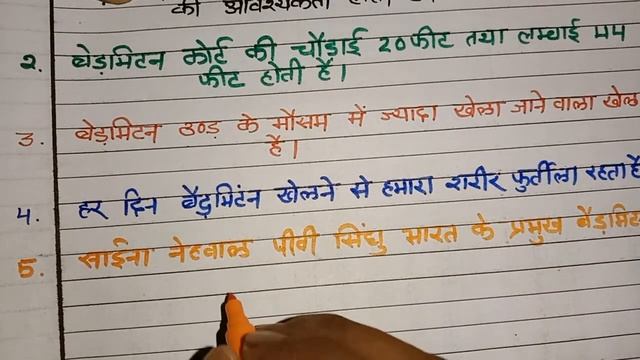 की आवश्यकता होती है।
2. बेड़मिंटन कोर्ट की चौड़ाई 20 फीट तथा लम्बाई 44
फीट होती है।
3. बेड़मिटन ठण्ड़ के मौसम में ज्यादा खेला जाने वाला खेल
है।
4. हर दिन बैडमिंटन खेलने से हमारा शरीर फुर्तीला रहता है
5. साईना नेहवाल पीवी सिंधु भारत के प्रमुख बैड़मिंट